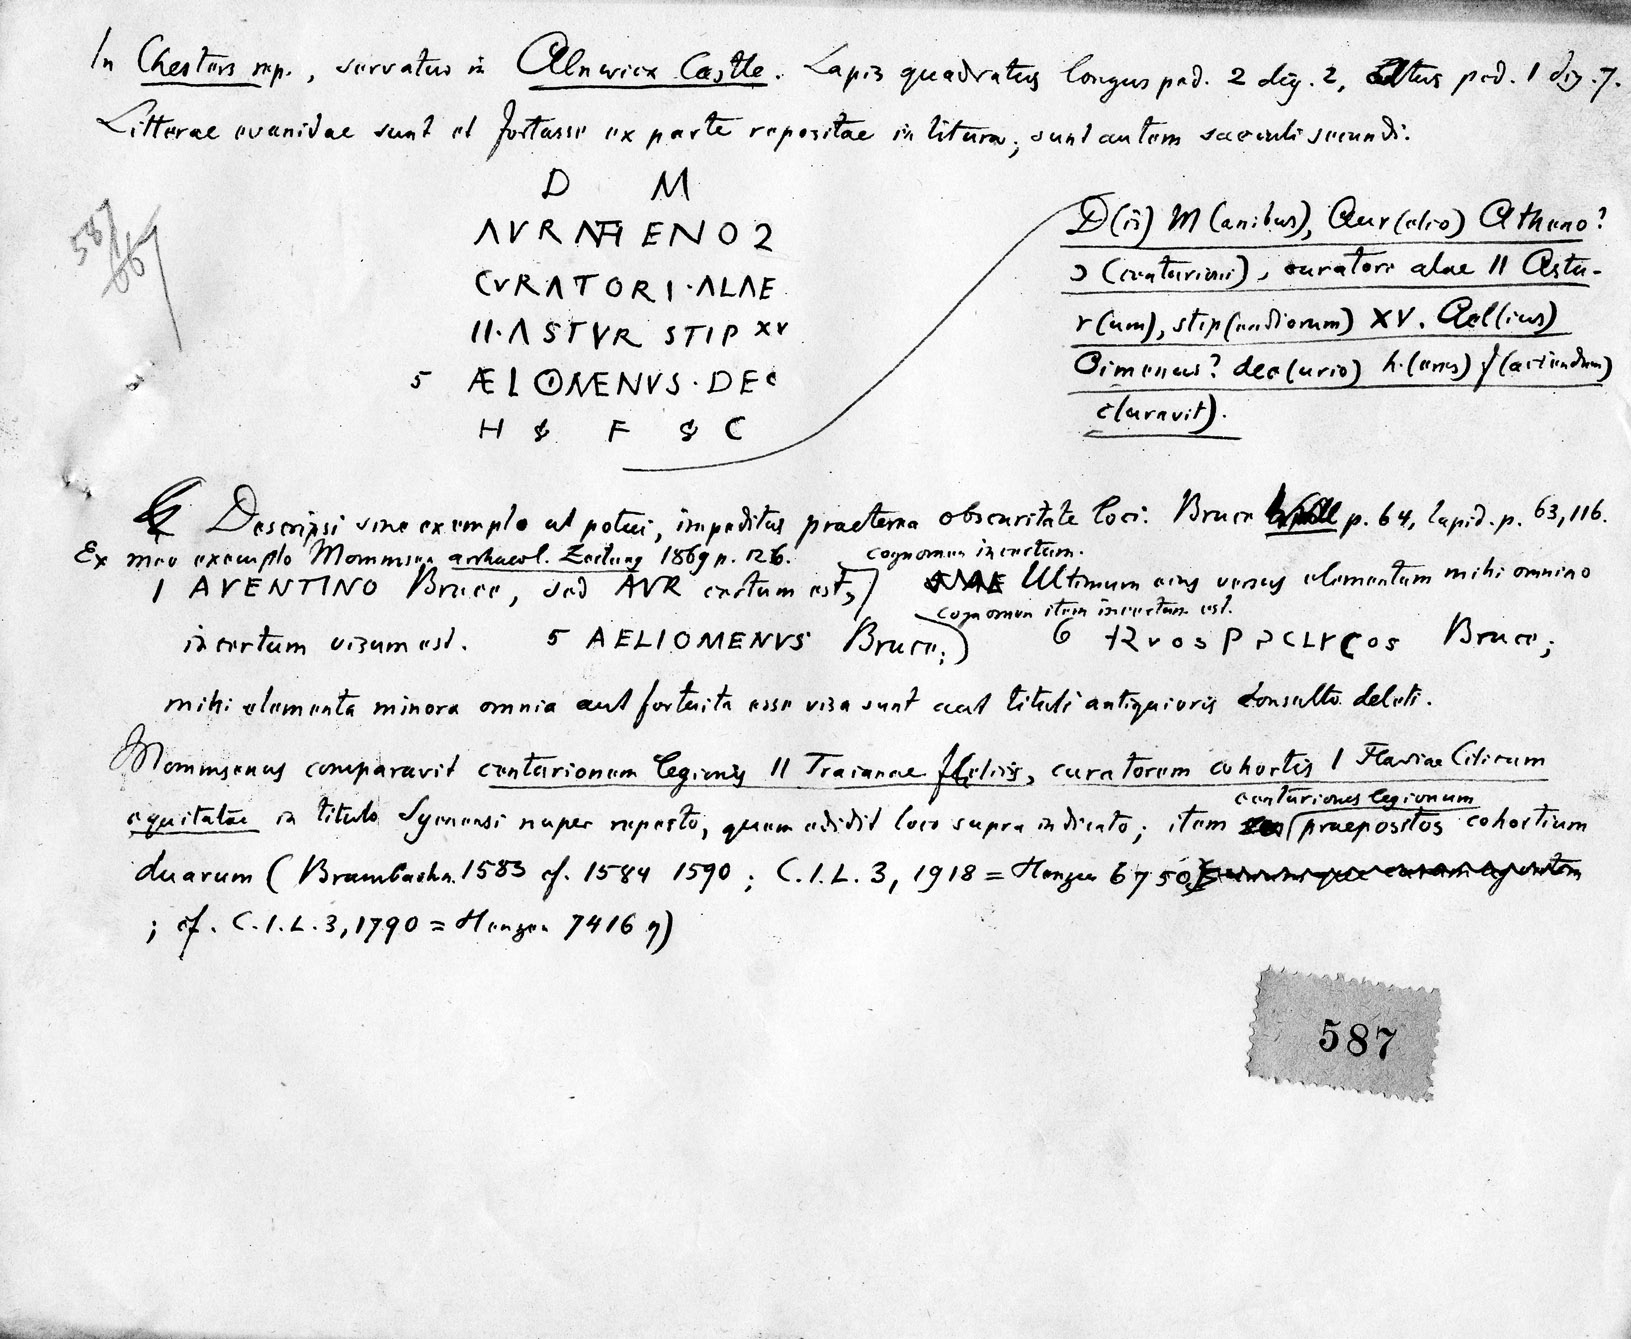 In Chesters rep., servatus in Alnwick Castle. Lapis quadratus longus ped. 2 dig. 2, altus ped. 1 dig. 7.
Litterae evanidae sunt et fortasse ex parte repositae in litura; sunt autem saeculi secundi.
D M
AVR ATHENO Ꙅ
CVRATORI·ALAE
II·ASTVR STIP XV
5 ÆL OMENVS·DEC
H F C
587
D(is) M(anibus), Aur(elio) Atheno?
Ɔ (centurioni), curatori alae II Astu-
r(um), stip(endiorum) XV. Ael(ius)
Oimenus? dec(urio) h.(eres) f(aciendum)
c(uravit).
Descripsi sine exemplo ut potui, impeditus praeterea obscuritate loci. Bruce p. 64, lapid. p. 63, 116.
Ex meo exemplo Mommsen archaeol. Zeitung 1869 p. 126.
cognomen incertum.
1 AVENTINO Bruce, sed AVR certum est, Ultimum eius versus elementum mihi omnino
cognomen item incertum est.
incertum visum est. 5 AELIOMENVS Bruce; 6 Bruce;
mihi elementa minora omnia aut fortuita esse visa sunt aut tituli antiquioris consulto deleti.
Mommsenus comparavit centurionem legionis II Traianae felicis, curatorem cohortis I Flaviae Cilicum
centuriones legionum
equitatae in titulo Syenensi nuper reperto, quem edidit loco supra indicato; item praepositos cohortium
duarum (Brambach n. 1583 cf. 1584 1590; C.I.L. 3, 1918 = Henzen 6750
; cf. C.I.L. 3, 1790 = Henzen 7416 η)
587